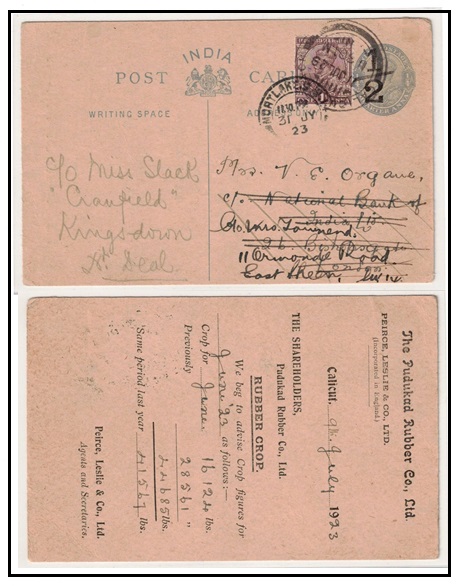 INDIA
POST CARD
WRITING SPACE
MORTLAKE S.
11.10 AM
31 JY
23
1/2
c/o Miss Slack
"Cranfield"
Kingsdown
Nr Deal
Mrs. V. E. Organe,
c/o National Bank of
India Ltd
c/o Mrs. Townend.
26
11 Ormonde Road.
East Sheen,
The Pudukad Rubber Co., Ltd.
PEIRCE, LESLIE & CO., LTD.
(Incorporated in England.)
Calicut, 9th July 1923
THE SHAREHOLDERS,
Pudukad Rubber Co., Ltd.
RUBBER CROP.
We beg to advise Crop figures for
June 23 as follows:—
Crop for June. 16124 lbs.
Previously 28561 "
44685 lbs.
Same period last year 41567 lbs.
Peirce, Leslie & Co., Ltd.
Agents and Secretaries.